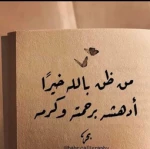 من ظن بالله خيرًا
أدهشه برحمته وكرمه